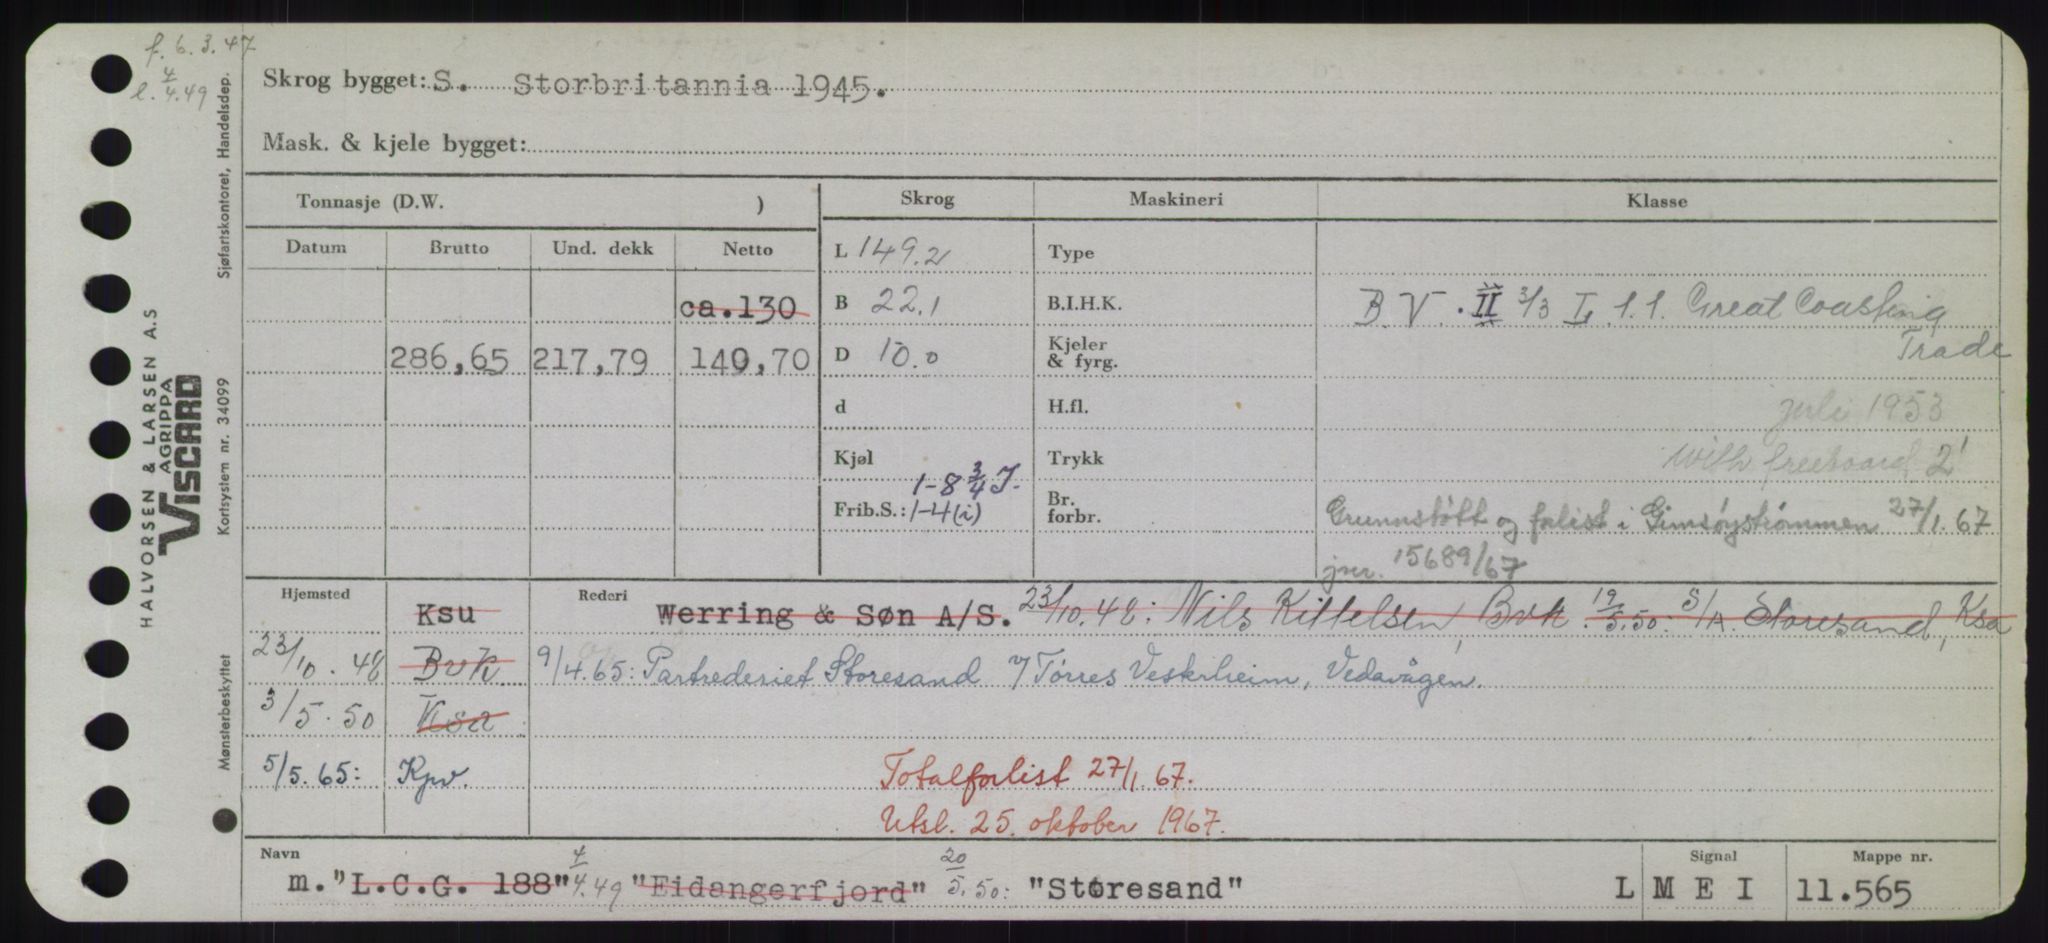 f. 6.3.47
l. 4/4.49
Skrog bygget: S. Storbritannia 1945.
Mask. & kjele bygget:
Tonnasje (D.W. )
Skrog
Maskineri
Klasse
Datum Brutto Und. dekk Netto
L 149.2
Type
ca.130
B 22.1
B.I.H.K.
B.V. · II 3/3 L 1.1. Great Coasting
Trade
286,65 217,79 140,70
D 10.0
Kjeler
& fyrg.
d
H.fl.
juli 1953
Kjøl
Trykk
with freeboard 2'
1-8 3/4 T.
Frib.S.: 1-4 (i)
Br.
forbr.
Grunnstøtt og forlist i Gimsøystrømmen 27/1.67
jnr. 15689/67
Hjemsted
Ksu
Rederi
Werring & Søn A/S. 23/10.48: Nils Kittelsen, Bvk. 19/5.50: S/A. Storesand, Ksa
23/10.48 Bvk
9/4.65: Partrederiet Storesand v/Tørres Veskrheim, Vedavågen.
3/5.50 Ksa
5/5.65: Kpv.
Totalforlist 27/1.67.
Utsl. 25. oktober 1967.
Navn
Signal
Mappe nr.
m. "L.C.G. 188" 4/4.49 "Eidangerfjord" 20/5.50: "Storesand"
L M E I
11.565
HALVORSEN & LARSEN A.S
AGRIPPA
VISCARD
Sjøfartskontoret, Handelsdep.
Kortsystem nr. 34099
Mønsterbeskyttet